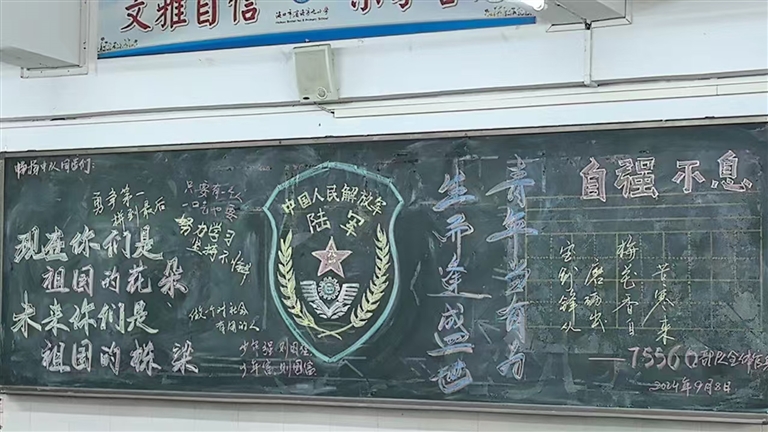 文雅自信
海口市滨海第九小学
中队同学们:
勇争第一
拼到最后
只要有
努力学习
坚持不懈
现在你们是
祖国的花朵
未来你们是
祖国的栋梁
做一个对社会
有用的人
少年强则国强
少年富则国富
中国人民解放军
陆军
生而逢盛世
青年当有为
自强不息
宝剑锋从
磨砺出
梅花香自
苦寒来
75560部队全体官兵
2024年9月8日